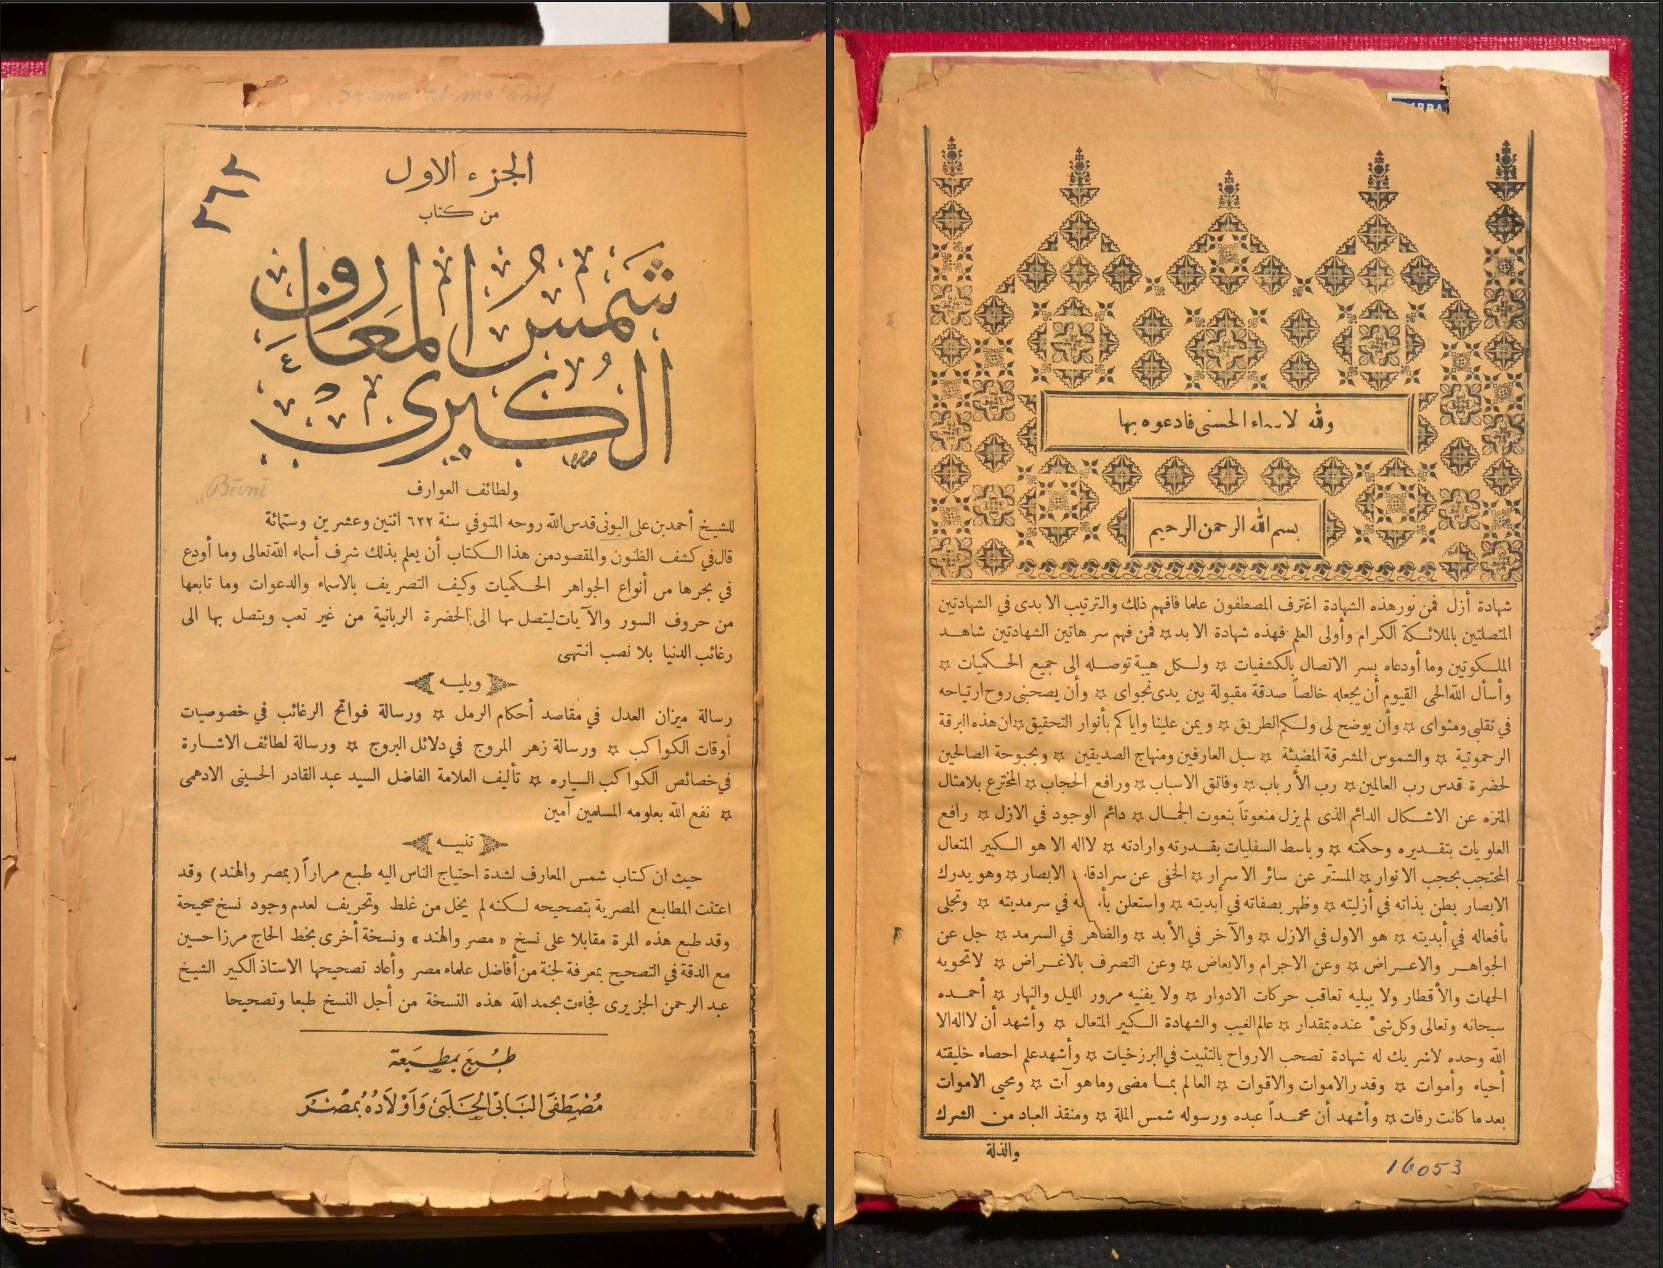 Shams al-maʿārif
٢٦٢
الجزء الاول
من كتاب
شمس المعارف
الكبرى
Būnī
ولطائف العوارف
للشيخ أحمد بن على البونى قدس الله روحه المتوفي سنة ٦٢٢ اثنين وعشرين وستمائة
قال في كشف الظنون والمقصود من هذا الكتاب أن يعلم بذلك شرف أسماء الله تعالى وما أودع
في بحرها من أنواع الجواهر الحكميات وكيف التصريف بالاسماء والدعوات وما تابعها
من حروف السور والآيات ليتصل بها الى الحضرة الربانية من غير تعب ويتصل بها الى
رغائب الدنيا بلا نصب انتهى
ويليه
رسالة ميزان العدل في مقاصد أحكام الرمل ☆ ورسالة فواتح الرغائب في خصوصيات
أوقات الكواكب ☆ ورسالة زهر المروج في دلائل البروج ☆ ورسالة لطائف الاشارة
في خصائص الكواكب السياره ☆ تأليف العلامة الفاضل السيد عبد القادر الحسينى الادهمى
☆ نفع الله بعلومه المسلمين آمين
تنبيه
حيث ان كتاب شمس المعارف لشدة احتياج الناس اليه طبع مراراً (بمصر والهند) وقد
اعتنت المطابع المصرية بتصحيحه لكنه لم يخل من غلط وتحريف لعدم وجود نسخ صحيحة
وقد طبع هذه المرة مقابلا على نسخ «مصر والهند» ونسخة أخرى بخط الحاج مرزا حسين
مع الدقة في التصحيح بمعرفة لجنة من أفاضل علماء مصر وأعاد تصحيحها الاستاذ الكبير الشيخ
عبد الرحمن الجزيرى فجاءت بحمد الله هذه النسخة من أجل النسخ طبعا وتصحيحا
طبع بمطبعة
مصطفى البابى الحلبى وأولاده بمصر
ولله لاسماء الحسنى فادعوه بها
بسم الله الرحمن الرحيم
شهادة أزل فمن نور هذه الشهادة اغترف المصطفون علما فافهم ذلك والترتيب الابدى في الشهادتين
المتصلتين بالملائكة الكرام وأولى العلم فهذه شهادة الابد ☆ فمن فهم سر هاتين الشهادتين شاهد
الملكوتين وما أودعاه بسر الاتصال بالكشفيات ☆ ولكل هيبة توصله الى جميع الحكميات ☆
وأسأل الله الحى القيوم أن يجعله خالصاً صدقة مقبولة بين يدى نجواى ☆ وأن يصحبنى روح ارتياحه
في تقلبى ومثواى ☆ وأن يوضح لى ولكم الطريق ☆ ويمن علينا واياكم بأنوار التحقيق ☆ ان هذه البرقة
الرحموتية ☆ والشموس المشرقة المضيئة ☆ سبل العارفين ومنهاج الصديقين ☆ وبحبوحة الصالحين
لحضرة قدس رب العالمين ☆ رب الأرباب ☆ وفاتق الاسباب ☆ ورافع الحجاب ☆ المخترع بلا مثال
المنزه عن الاشكال الدائم الذى لم يزل منعوتاً بنعوت الجمال ☆ دائم الوجود في الازل ☆ رافع
العلويات بتقديره وحكمته ☆ وباسط السفليات بقدرته وارادته ☆ لا اله الا هو الكبير المتعال
المحتجب بحجب الانوار ☆ المستتر عن سائر الاسرار ☆ الخفى عن سرادقا الابصار ☆ وهو يدرك
الابصار بطن بذاته في أزليته ☆ وظهر بصفاته في أبديته ☆ واستعلن بأ له في سرمديته ☆ وتجلى
بأفعاله في أبديته ☆ هو الاول في الازل ☆ والآخر في الأبد ☆ والظاهر في السرمد ☆ جل عن
الجواهر والاعراض ☆ وعن الاجرام والابعاض ☆ وعن التصرف بالاغراض ☆ لا تحويه
الجهات والأقطار ولا يبليه تعاقب حركات الادوار ☆ ولا يفنيه مرور الليل والنهار ☆ أحمده
سبحانه وتعالى وكل شئ عنده بمقدار ☆ عالم الغيب والشهادة الكبير المتعال ☆ وأشهد أن لا اله الا
الله وحده لا شريك له شهادة تصحب الارواح بالتثبيت في البرزخيات ☆ وأشهد علم احصاء خليقته
أحياء وأموات ☆ وقدر الاموات والاقوات ☆ العالم بما مضى وما هو آت ☆ ومحيى الاموات
بعد ما كانت رفات ☆ وأشهد أن محمداً عبده ورسوله شمس الملة ☆ ومنقذ العباد من الشرك
والذلة
16053